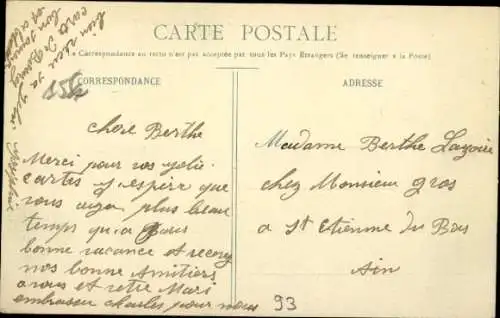 CARTE POSTALE
La Correspondance au recto n'est pas acceptée par tous les Pays Étrangers (Se renseigner à la Poste)
CORRESPONDANCE
ADRESSE
chere Berthe
Merci pour vos jolie
cartes j'espire que
vous aurez plus beau
temps qu'a Paris
bonne vacance et recevez
nos bonne Amitiers
a vous et votre Mari
embrasser charles pour nous
Madame Berthe
chez Monsieur gros
a St Etienne du Bois
Ain
93